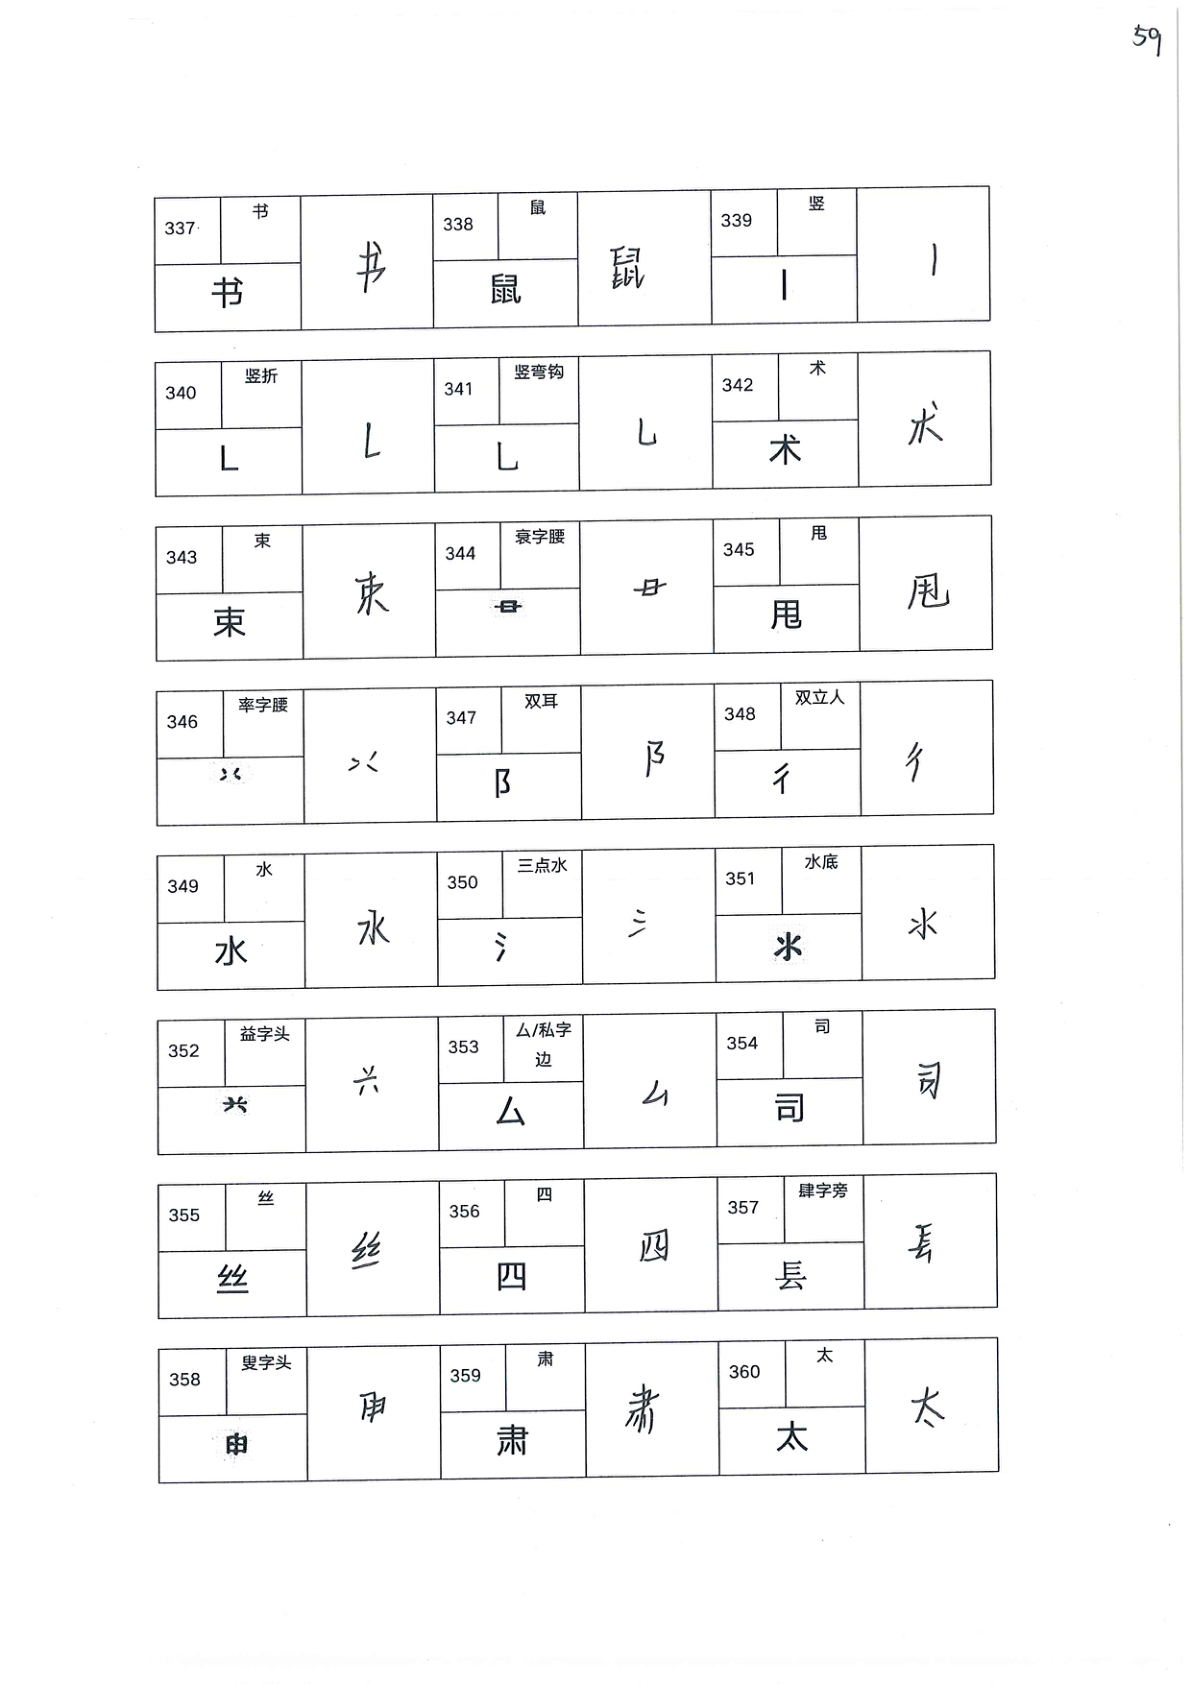 59
337 书 书 书
338 鼠 鼠 鼠
339 竖 丨 丨
340 竖折 𠃊 𠃊
341 竖弯钩 乚 乚
342 术 术 术
343 束 束 束
344 衰字腰
345 甩 甩 甩
346 率字腰
347 双耳 阝 阝
348 双立人 彳 彳
349 水 水 水
350 三点水 氵 氵
351 水底 氺 氺
352 益字头
353 厶/私字边 厶 厶
354 司 司 司
355 丝 丝 丝
356 四 四 四
357 肆字旁 镸 镸
358 叟字头
359 肃 肃 肃
360 太 太 太